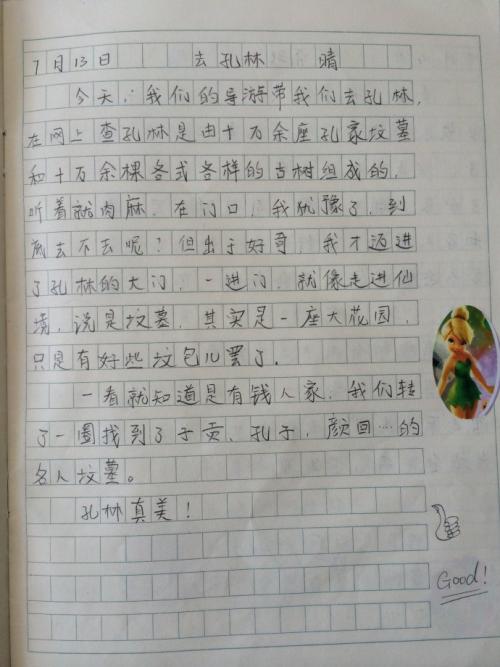 7月13日 去孔林 晴
今天，我们的导游带我们去孔林，
在网上查孔林是由十万余座孔家坟墓
和十万余棵各式各样的古树组成的，
听着就肉麻，在门口，我犹豫了，到
底去不去呢？但出于好哥，我才迈进
了孔林的大门，一进门，就像走进仙
境，说是坟墓，其实是一座大花园，
只是有好些坟包儿罢了．
一看就知道是有钱人家，我们转
了一圈找到了子贡、孔子，颜回…的
名人坟墓。
孔林真美！
Good!